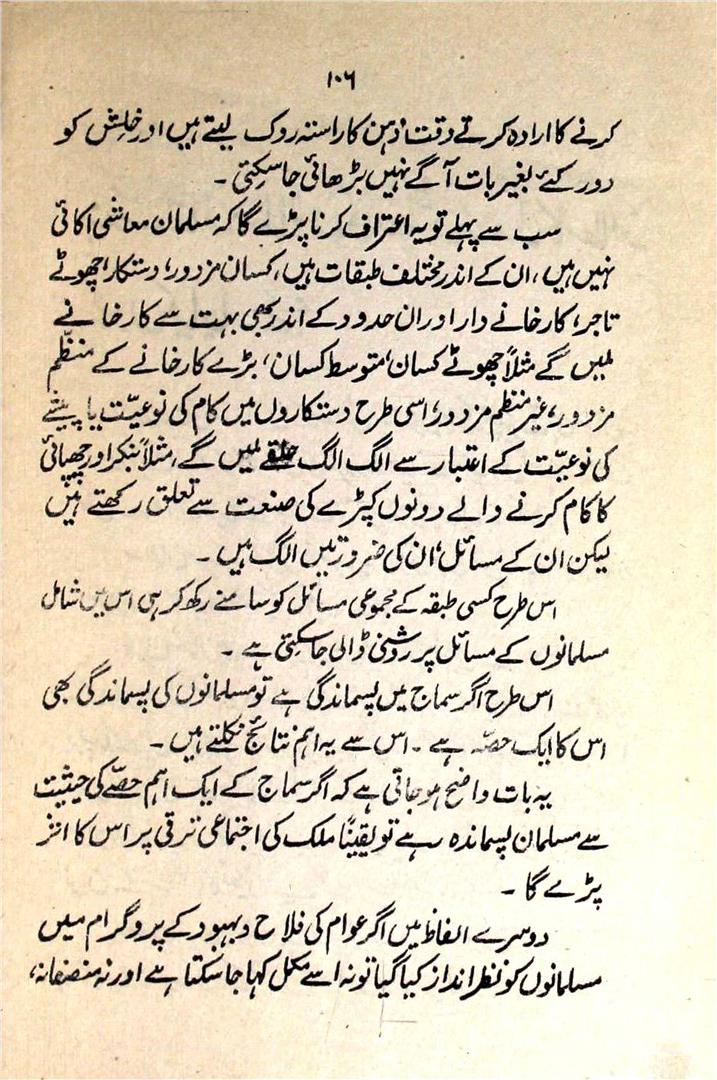 ۱۰۶
کرنے کا ارادہ کرتے وقت ذہن کا راستہ روک لیتے ہیں اور خلش کو
دور کئے بغیر بات آگے نہیں بڑھائی جا سکتی ۔
سب سے پہلے تو یہ اعتراف کرنا پڑے گا کہ مسلمان معاشی اکائی
نہیں ہیں ، ان کے اندر مختلف طبقات ہیں، کسان مزدور، دستکار، چھوٹے
تاجر، کارخانے دار اور ان حدود کے اندر بھی بہت سے کارخانے
ملیں گے مثلاً چھوٹے کسان، متوسط کسان، بڑے کارخانے کے منظّم
مزدور، غیر منظم مزدور، اسی طرح دستکاروں میں کام کی نوعیّت یا پیشے
کی نوعیّت کے اعتبار سے الگ الگ حلقے ملیں گے، مثلاً بنکر اور چھپائی
کا کام کرنے والے دونوں کپڑے کی صنعت سے تعلق رکھتے ہیں
لیکن ان کے مسائل، ان کی ضرورتیں الگ ہیں ۔
اس طرح کسی طبقہ کے مجموعی مسائل کو سامنے رکھ کر ہی اس میں شامل
مسلمانوں کے مسائل پر روشنی ڈالی جا سکتی ہے ۔
اس طرح اگر سماج میں پسماندگی ہے تو مسلمانوں کی پسماندگی بھی
اس کا ایک حصّہ ہے ۔ اس سے یہ اہم نتائج نکلتے ہیں ۔
یہ بات واضح ہو جاتی ہے کہ اگر سماج کے ایک اہم حصّے کی حیثیت
سے مسلمان پسماندہ رہے تو یقیناً ملک کی اجتماعی ترقی پر اس کا اثر
پڑے گا ۔
دوسرے الفاظ میں اگر عوام کی فلاح و بہبود کے پروگرام میں
مسلمانوں کو نظر انداز کیا گیا تو نہ اسے مکمل کہا جا سکتا ہے اور نہ منصفانہ،